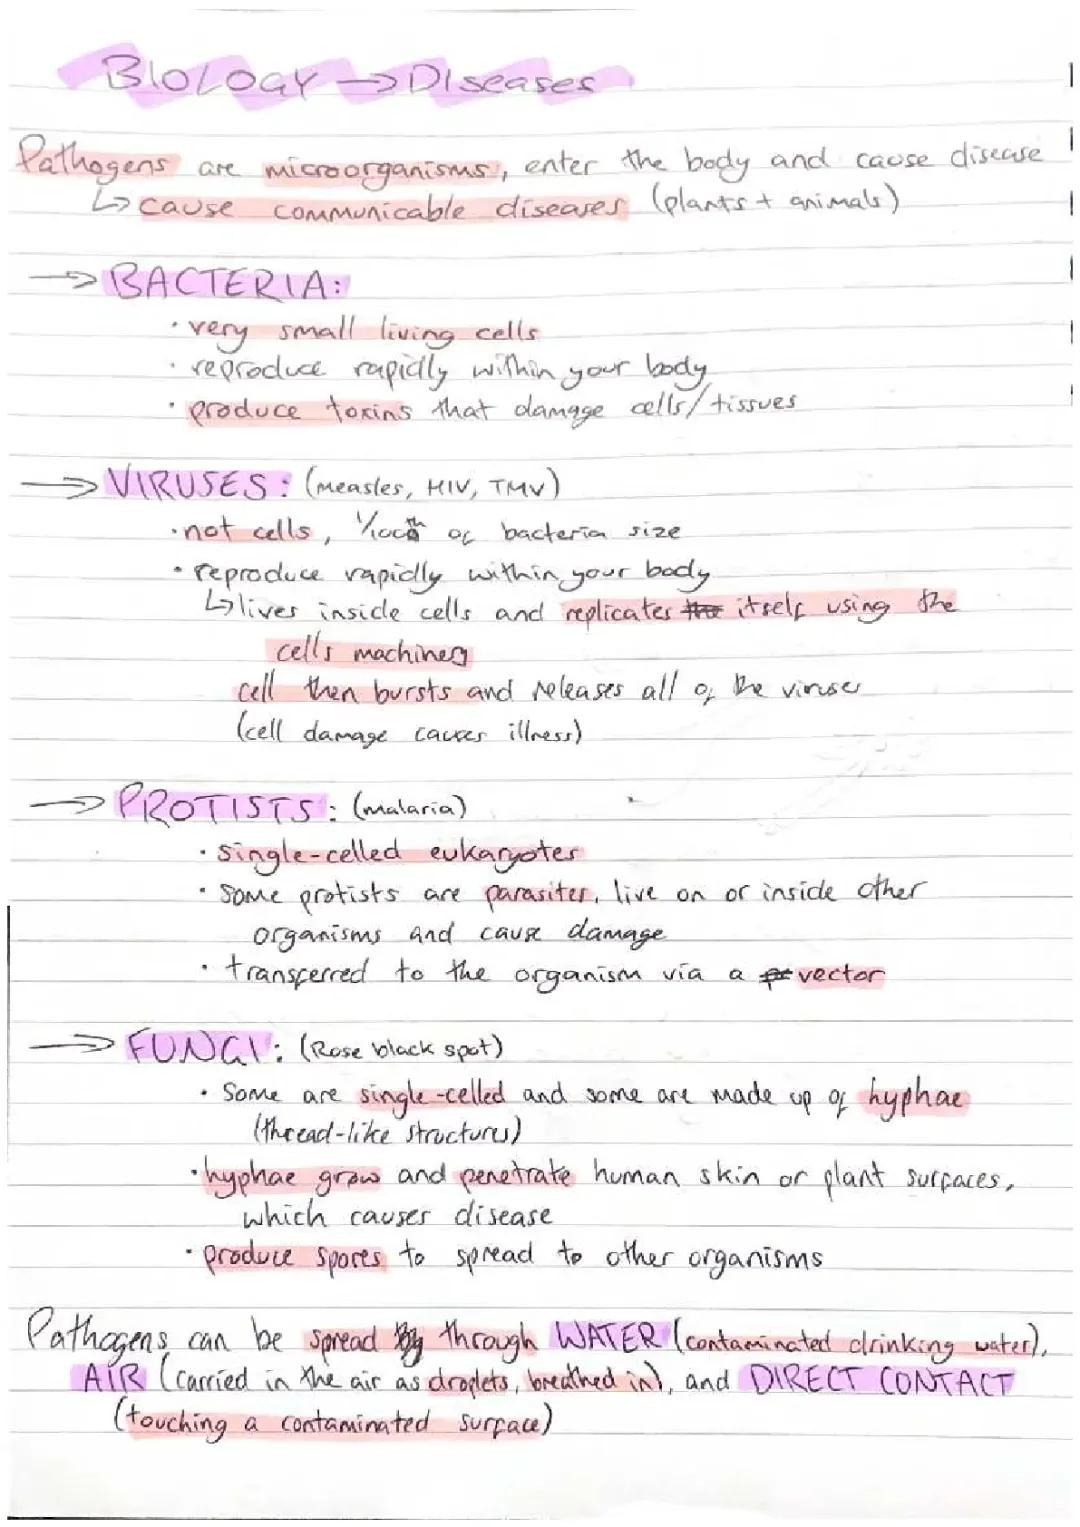 BIOLOGY → DIseases
Pathogens are microorganisms, enter the body and cause disease
↳ cause communicable diseases (plants + animals)
→ BACTERIA:
· very small living cells
· reproduce rapidly within your body
· produce toxins that damage cells/tissues
→ VIRUSES: (measles, HIV, TMV)
· not cells, 1/100th of bacteria size
· reproduce rapidly within your body
↳ lives inside cells and replicates itself using the
cells machinery
cell then bursts and releases all of the viruses
(cell damage causes illness)
→ PROTISTS: (malaria)
· single-celled eukaryotes
· some protists are parasites, live on or inside other
organisms and cause damage
· transferred to the organism via a vector
→ FUNGI: (Rose black spot)
· Some are single-celled and some are made up of hyphae
(thread-like structures)
· hyphae grow and penetrate human skin or plant surfaces,
which causes disease
· produce spores to spread to other organisms
Pathogens can be spread through WATER (contaminated drinking water),
AIR (carried in the air as droplets, breathed in), and DIRECT CONTACT
(touching a contaminated surface)